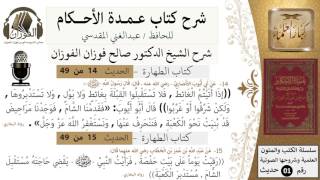 شرح كتاب عمدة الأحكام
للحافظ / عبدالغني المقدسي
شرح الشيخ الدكتور صالح فوزان الفوزان
الفوزان
كتاب الطهارة - الحديث 14 من 49
((إِذَا أَتَيْتُمُ الْغَائِطَ، فَلَا تَسْتَقْبِلُوا الْقِبْلَةَ بِغَائِطٍ وَلَا بَوْلٍ، وَلَا تَسْتَدْبِرُوهَا،
وَلَكِنْ شَرِّقُوا أَوْ غَرِّبُوا)) قَالَ أَبُو أَيُّوبَ: ((فَقَدِمْنَا الشَّامَ، فَوَجَدْنَا مَرَاحِيضَ
قَدْ بُنِيَتْ نَحْوَ الْكَعْبَةِ، فَنَنْحَرِفُ عَنْهَا، وَنَسْتَغْفِرُ اللهَ عَزَّ وَجَلَّ)).
كتاب الطهارة - الحديث 15 من 49
((رَقِيتُ يَوْمًا عَلَى بَيْتِ حَفْصَةَ، فَرَأَيْتُ النَّبِيَّ ﷺ يَقْضِي حَاجَتَهُ مُسْتَقْبِلَ
الشَّامِ، مُسْتَدْبِرَ الْكَعْبَةِ)).
سلسلة الكتب والمتون
العلمية وشروحها الصوتية
رقم 01 حديث